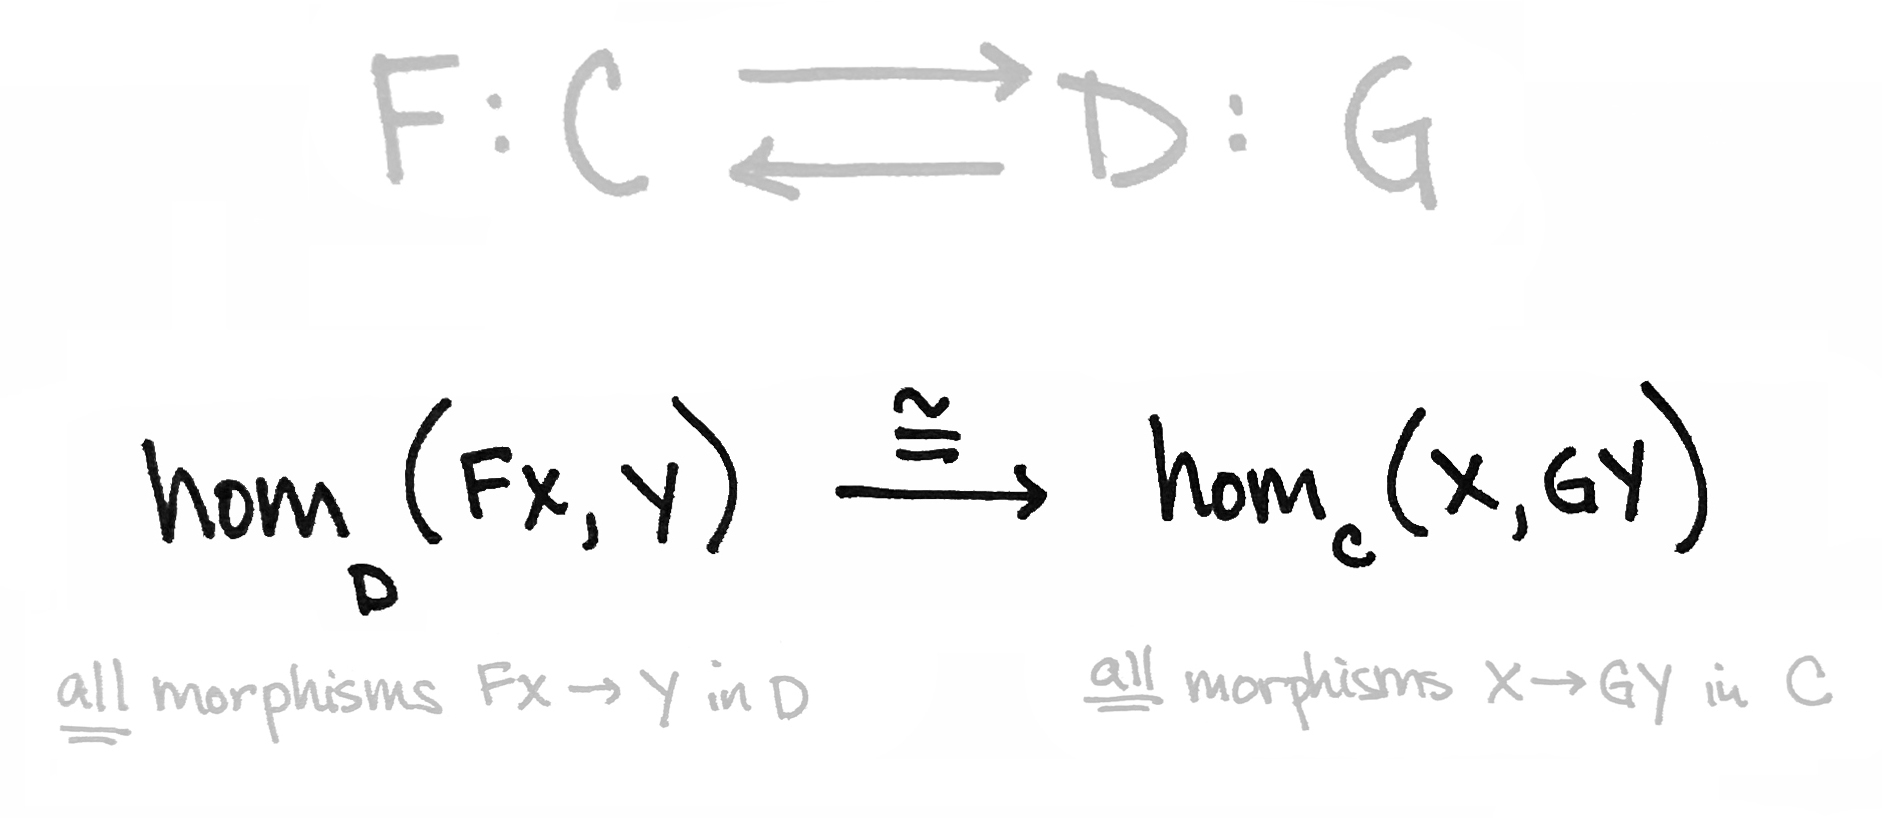 F : C ⇄ D : G
hom_D (FX, Y) ≅→ hom_C (X, GY)
all morphisms FX → Y in D all morphisms X → GY in C